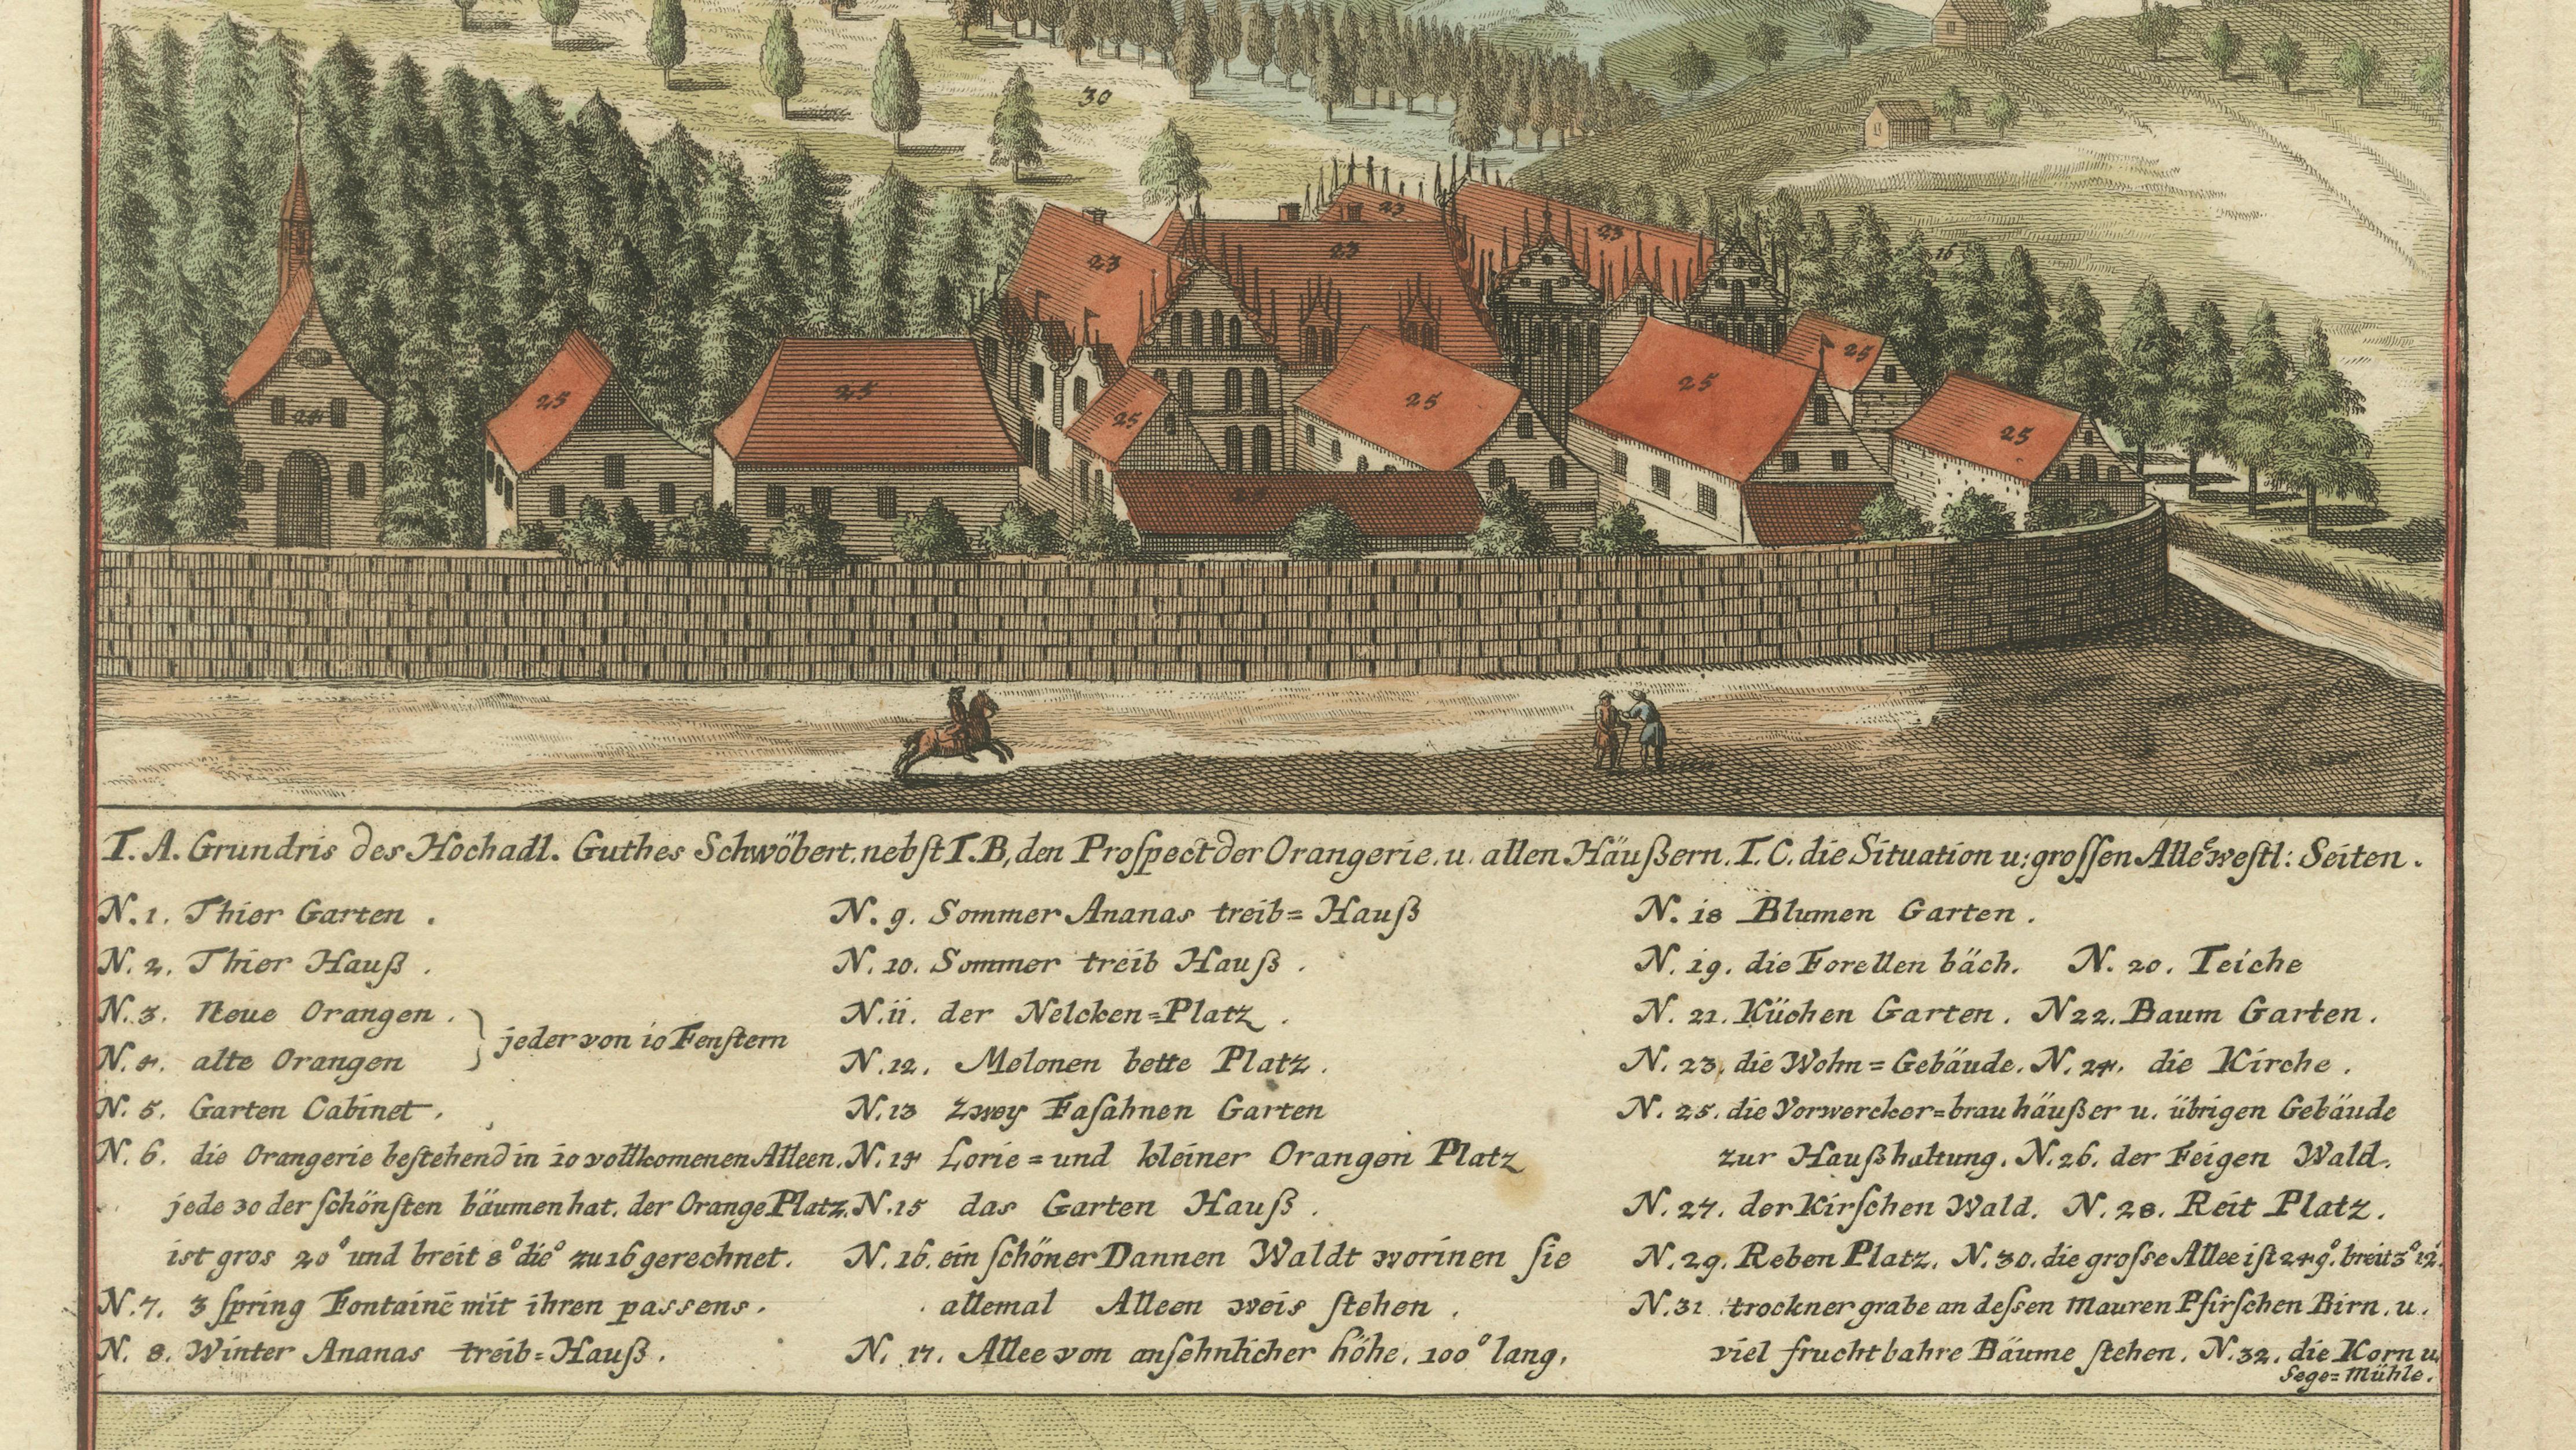 30
23
23
23
23
16
24
25
25
25
25
25
25
25
25
T. A. Grundris des Hochadl. Guthes Schwöbert. nebſt T. B, den Proſpect der Orangerie. u. allen Häußern. T. C. die Situation u: groſſen Allee weſtl: Seiten.
N. 1. Thier Garten.
N. 2. Thier Hauß.
N. 3. Neue Orangen.
N. 4. alte Orangen
jeder von 10 Fenſtern
N. 5. Garten Cabinet.
N. 6. die Orangerie beſtehend in 10 vollkomenen Alleen.
jede 30 der ſchönſten bäumen hat. der Orange Platz.
ist gros 20° und breit 8° die° zu 16 gerechnet.
N. 7. 3 ſpring Fontainē mit ihren passens.
N. 8. Winter Ananas treib=Hauß.
N. 9. Sommer Ananas treib=Hauß
N. 10. Sommer treib Hauß.
N. 11. der Nelcken=Platz.
N. 12. Melonen bette Platz.
N. 13 Zwey Faſahnen Garten
N. 14 Lorie=und kleiner Orangen Platz
N. 15 das Garten Hauß.
N. 16. ein ſchöner Dannen Waldt worinen ſie
allemal Alleen weis ſtehen.
N. 17. Allee von anſehnlicher höhe. 100° lang.
N. 18 Blumen Garten.
N. 19. die Forellen bäch. N. 20. Teiche
N. 21. Küchen Garten. N 22. Baum Garten.
N. 23. die Wohn=Gebäude. N. 24. die Kirche.
N. 25. die Vorwercker=brau häußer u. übrigen Gebäude
zur Haußhaltung. N. 26. der Feigen Wald.
N. 27. der Kirſchen Wald. N. 28. Reit Platz.
N. 29. Reben Platz. N. 30. die groſse Allee iſt 249° breit 3° 12.
N. 31 trockner grabe an deſsen Mauren Pfirſchen Birn. u.
viel fruchtbahre Bäume ſtehen. N. 32. die Korn u.
Sege=Mühle.